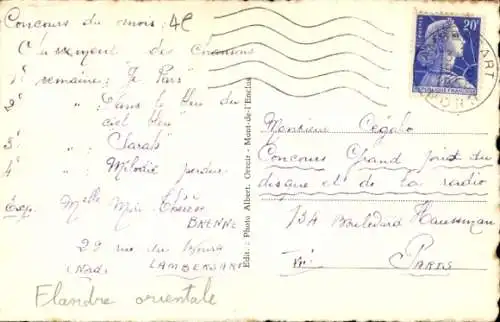 Concours du mois : 4€
Classement des chansons
1e semaine : "Je Pars"
2e " : Dans le bleu du
ciel bleu"
3e " : Sarah"
4e " : Mélodie perdue"
Exp. Melle Marie Thérèse
BRENNE
29 rue du
(Nord) LAMBERSART
Flandre orientale
Edit. : Photo Albert. Orroir - Mont-de-l'Enclus
POSTES
20F
REPUBLIQUE FRANÇAISE
ART
NORD
Monsieur Cégaho
Concours Grand prix du
disque et de la radio
134 Boulevard Haussman
PARIS